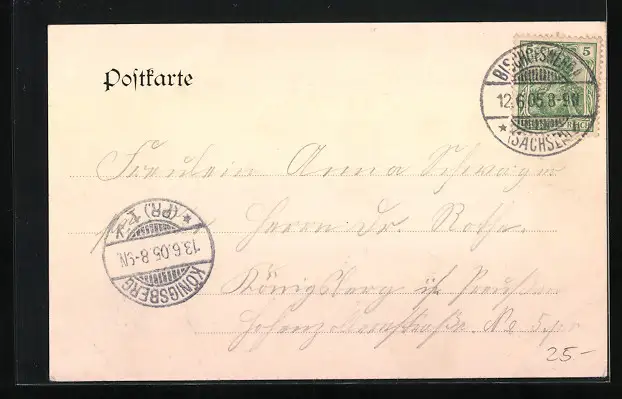 Postkarte
5
BISCHOFSWERDA
12.6.05.8-9N
* (SACHSEN)
Fräulein Anna Schwager
Herrn Dr. Rothe.
* (PR.) 1
13.6.05.8-9N.
KÖNIGSBERG
Königsberg in Preußen
Hohenzollernstraße. No 5
25-